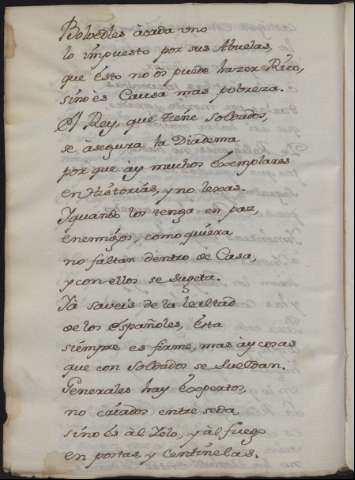 Bolvedles acada uno
lo impuesto por sus Abuelas,
que ésto no ôs puede hazer Rico,
sino es Causa mas pobreza.
El Rey, que tiene Soldados,
se àsegura la Diadema
porque ày muchos exemplares
en Historias, y no lexas.
Yquando los tenga en paz,
enemigos, como quiera
no faltan dentro de Casa,
y con ellos se sugeta.
Yà saveis de la lealtad
de los Españoles, ésta
siempre es firme, mas ày cosas
que con Soldados se sueldan.
Generales hay Expertos,
no criados entre seda,
sino és àl Yelo, y àl fuego
en postas, y Centinelas.